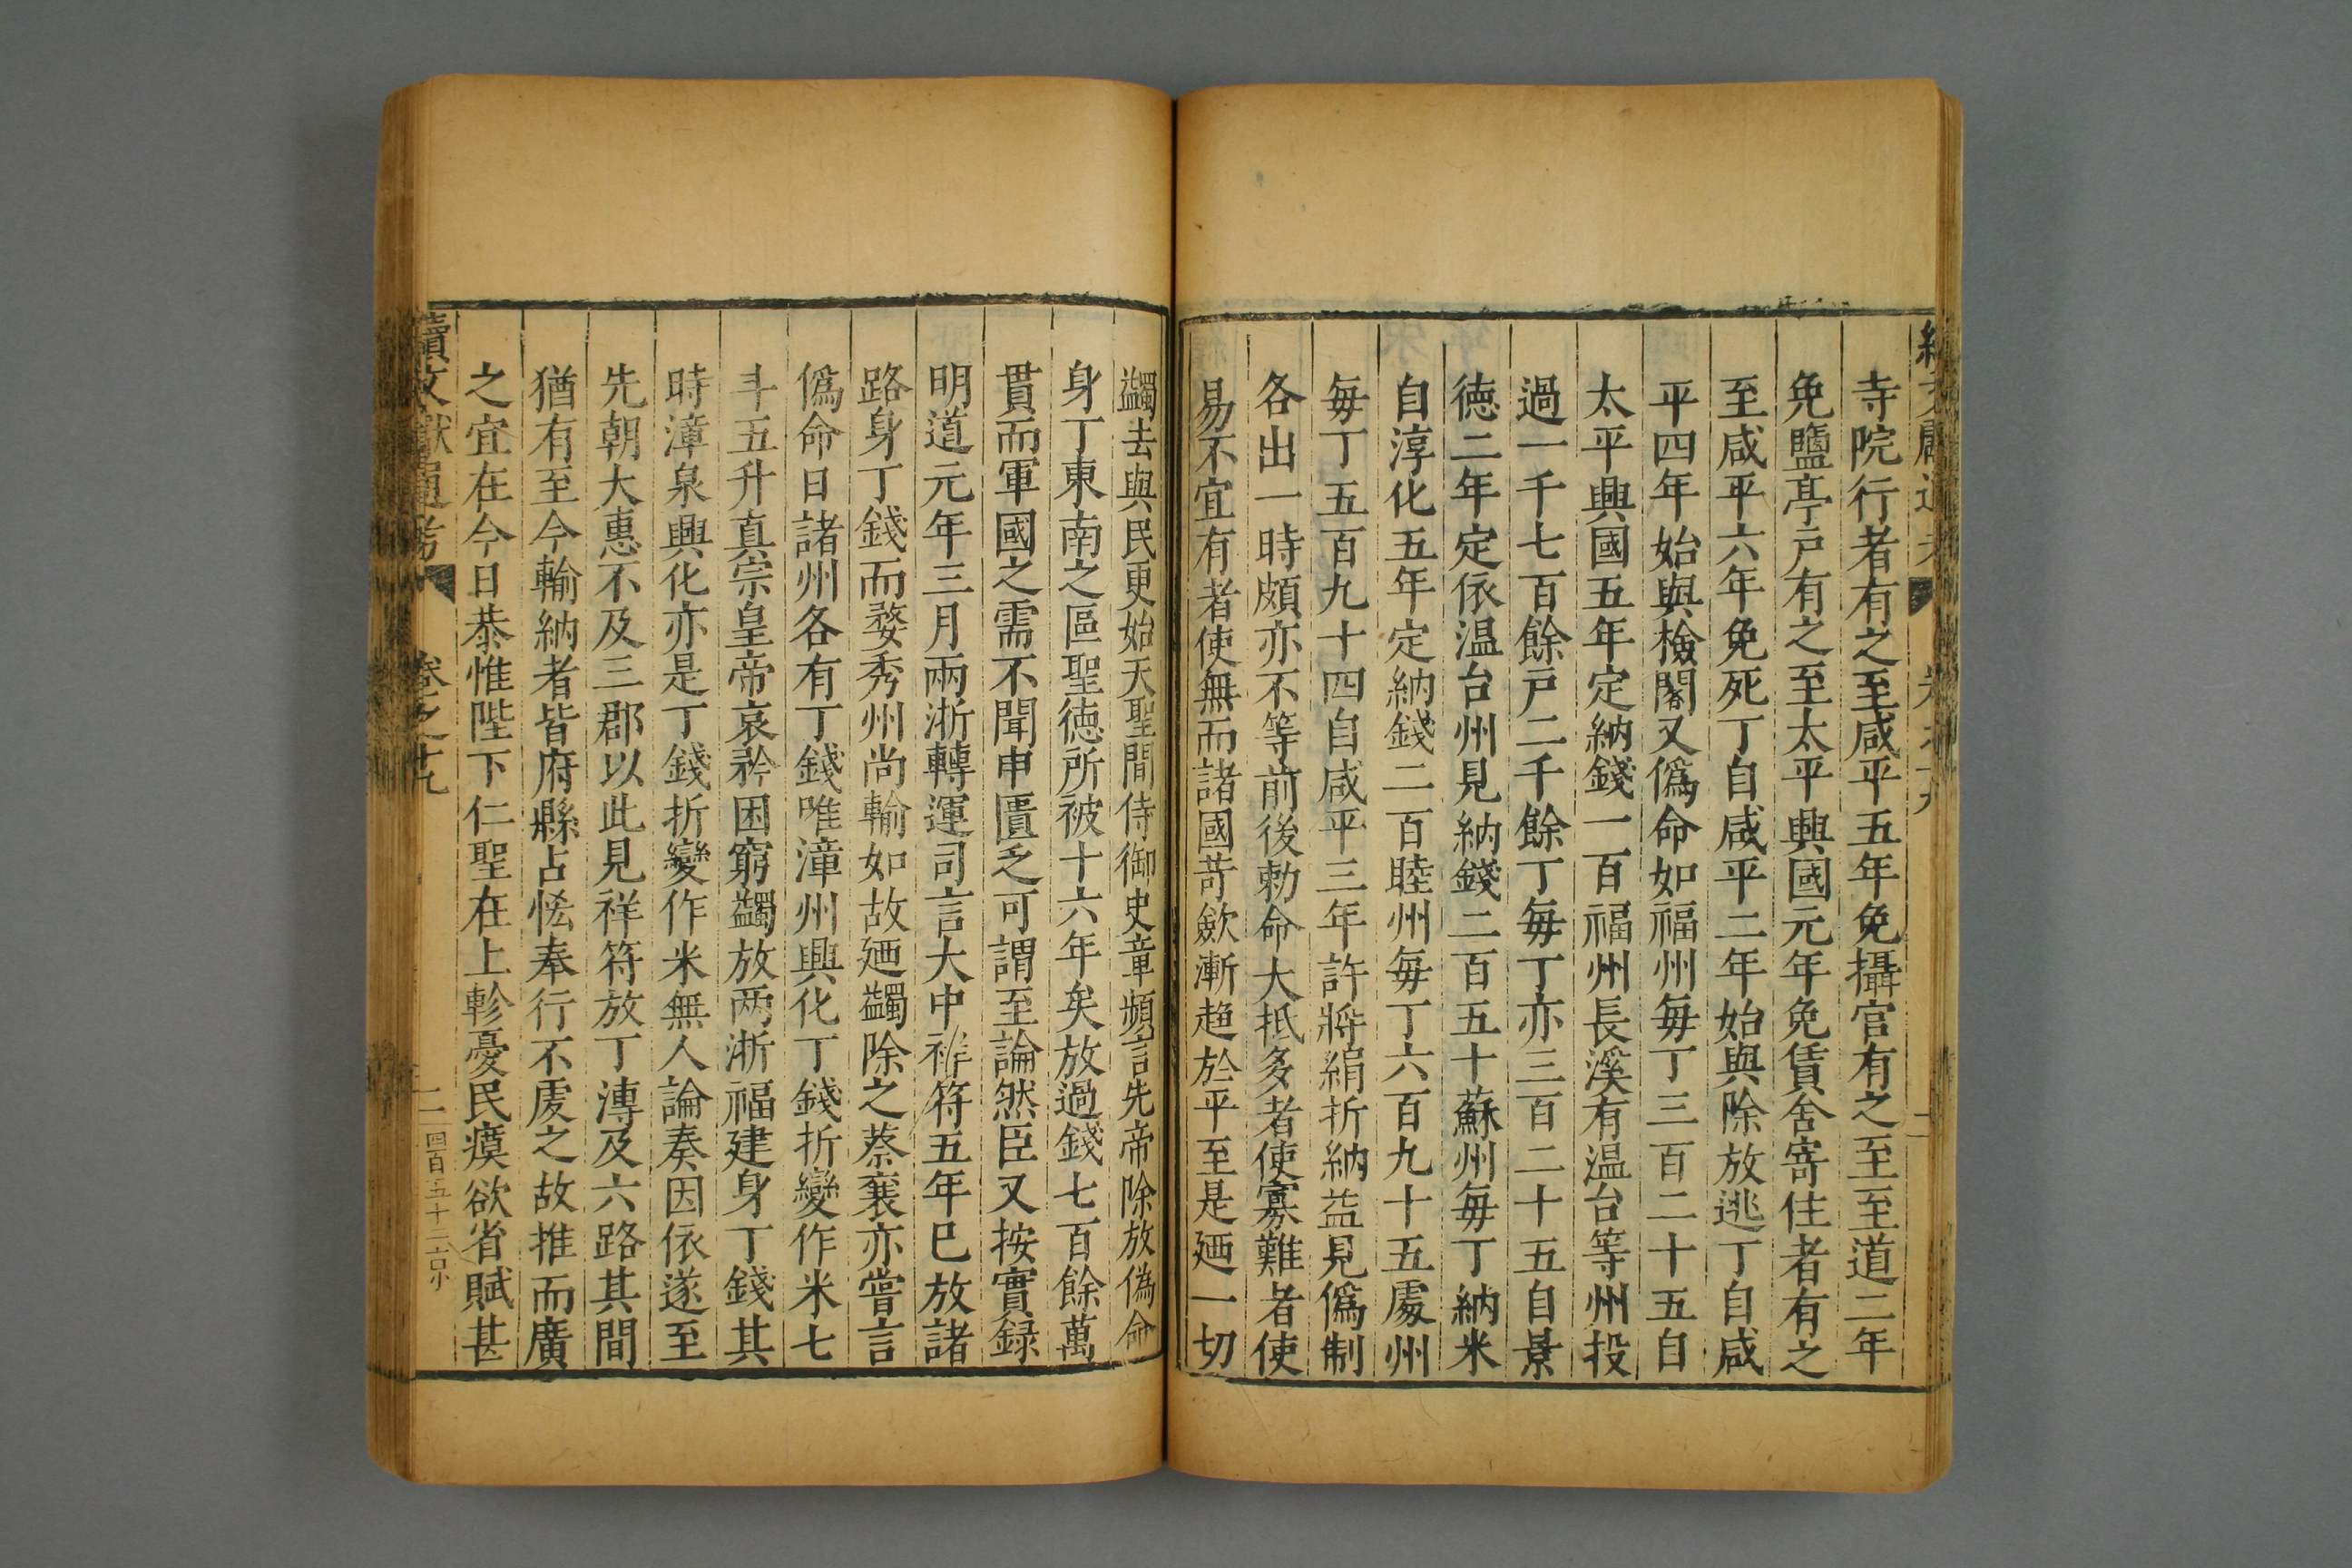 寺院行者有之至咸平五年免攝官有之至至道二年
免鹽亭戶有之至太平興國元年免賃舍寄住者有之
至咸平六年免死丁自咸平二年始與除放逃丁自咸
平四年始與檢閣又僞命如福州每丁三百二十五自
太平興國五年定納錢一百福州長溪有温台等州投
過一千七百餘戶二千餘丁每丁亦三百二十五自景
徳二年定依温台州見納錢二百五十蘇州每丁納米
自淳化五年定納錢二百睦州每丁六百九十五處州
每丁五百九十四自咸平三年許將絹折納益見僞制
各出一時頗亦不等前後勅命大抵多者使寡難者使
易不宜有者使無而諸國苛歛漸趋於平至是廼一切
蠲去與民更始天聖間侍御史章頻言先帝除放偽命
身丁東南之區聖徳所被十六年矣放過錢七百餘萬
貫而軍國之需不聞申匱乏可謂至論然臣又按實録
明道元年三月兩浙轉運司言大中祥符五年巳放諸
路身丁錢而婺秀州尚輸如故廼蠲除之蔡襄亦嘗言
僞命日諸州各有丁錢唯漳州興化丁錢折變作米七
斗五升真宗皇帝哀矜困窮蠲放两浙福建身丁錢其
時漳泉興化亦是丁錢折變作米無人論奏因依遂至
先朝大惠不及三郡以此見祥符放丁溥及六路其間
猶有至今輸納者皆府縣占恡奉行不虔之故推而廣
之宜在今日恭惟陛下仁聖在上軫憂民瘼欲省賦甚
續文獻通考 卷之十九 二 四百五十二